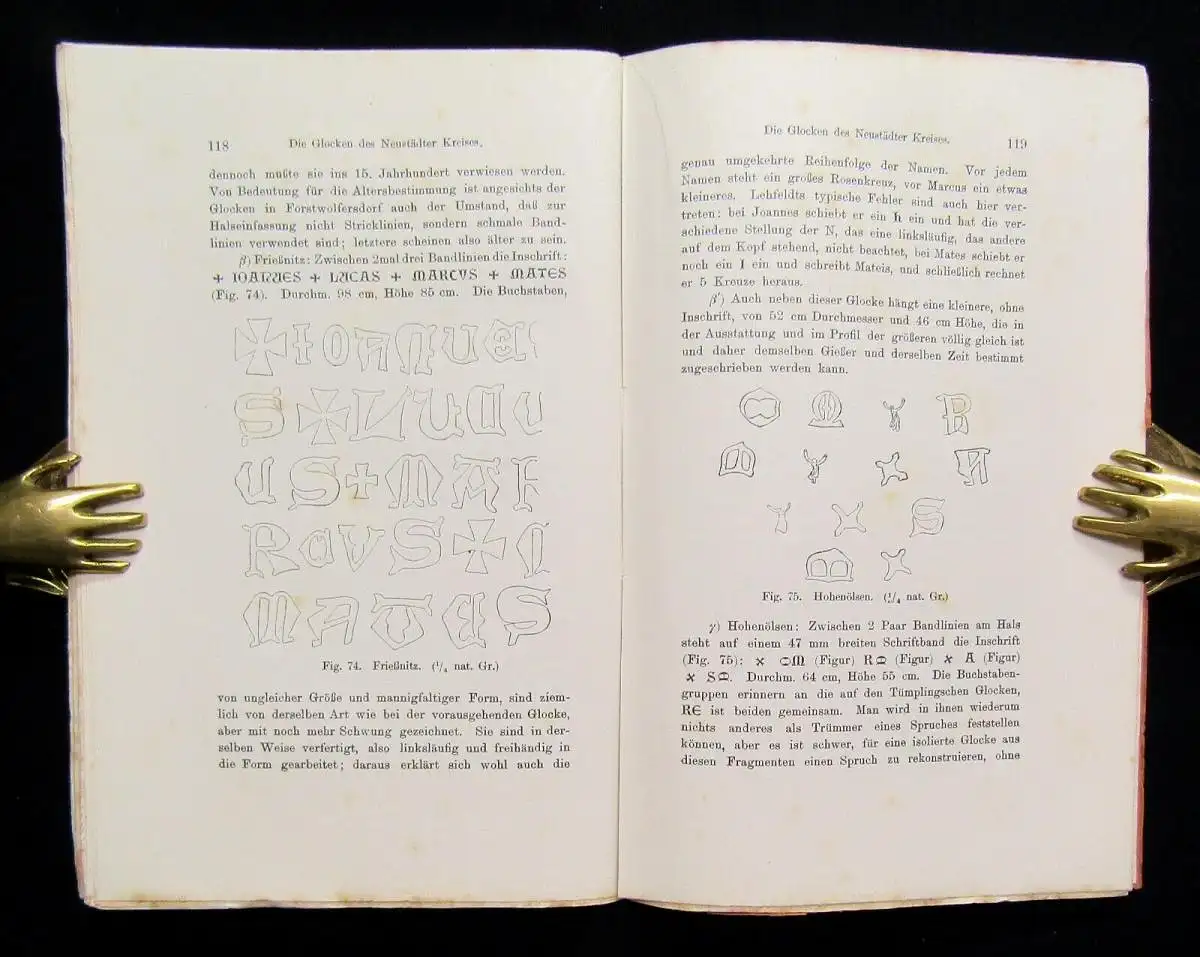 118 Die Glocken des Neustädter Kreises.
dennoch mußte sie ins 15. Jahrhundert verwiesen werden.
Von Bedeutung für die Altersbestimmung ist angesichts der
Glocken in Forstwolfersdorf auch der Umstand, daß zur
Halseinfassung nicht Stricklinien, sondern schmale Band-
linien verwendet sind; letztere scheinen also älter zu sein.
β) Frießnitz: Zwischen 2mal drei Bandlinien die Inschrift:
+ IOANNES + LUCAS + MARCVS + MATES
(Fig. 74). Durchm. 98 cm, Höhe 85 cm. Die Buchstaben,
Fig. 74. Frießnitz. (¹/₄ nat. Gr.)
von ungleicher Größe und mannigfaltiger Form, sind ziem-
lich von derselben Art wie bei der vorausgehenden Glocke,
aber mit noch mehr Schwung gezeichnet. Sie sind in der-
selben Weise verfertigt, also linksläufig und freihändig in
die Form gearbeitet; daraus erklärt sich wohl auch die
Die Glocken des Neustädter Kreises. 119
genau umgekehrte Reihenfolge der Namen. Vor jedem
Namen steht ein großes Rosenkreuz, vor Marcus ein etwas
kleineres. Lehfeldts typische Fehler sind auch hier ver-
treten: bei Joannes schiebt er ein h ein und hat die ver-
schiedene Stellung der N, das eine linksläufig, das andere
auf dem Kopf stehend, nicht beachtet, bei Mates schiebt er
noch ein I ein und schreibt Mateis, und schließlich rechnet
er 5 Kreuze heraus.
β') Auch neben dieser Glocke hängt eine kleinere, ohne
Inschrift, von 52 cm Durchmesser und 46 cm Höhe, die in
der Ausstattung und im Profil der größeren völlig gleich ist
und daher demselben Gießer und derselben Zeit bestimmt
zugeschrieben werden kann.
Fig. 75. Hohenölsen. (¹/₄ nat. Gr.)
γ) Hohenölsen: Zwischen 2 Paar Bandlinien am Hals
steht auf einem 47 mm breiten Schriftband die Inschrift
(Fig. 75): × M (Figur) R (Figur) × A (Figur)
× S. Durchm. 64 cm, Höhe 55 cm. Die Buchstaben-
gruppen erinnern an die auf den Tümplingschen Glocken,
RE ist beiden gemeinsam. Man wird in ihnen wiederum
nichts anderes als Trümmer eines Spruches feststellen
können, aber es ist schwer, für eine isolierte Glocke aus
diesen Fragmenten einen Spruch zu rekonstruieren, ohne